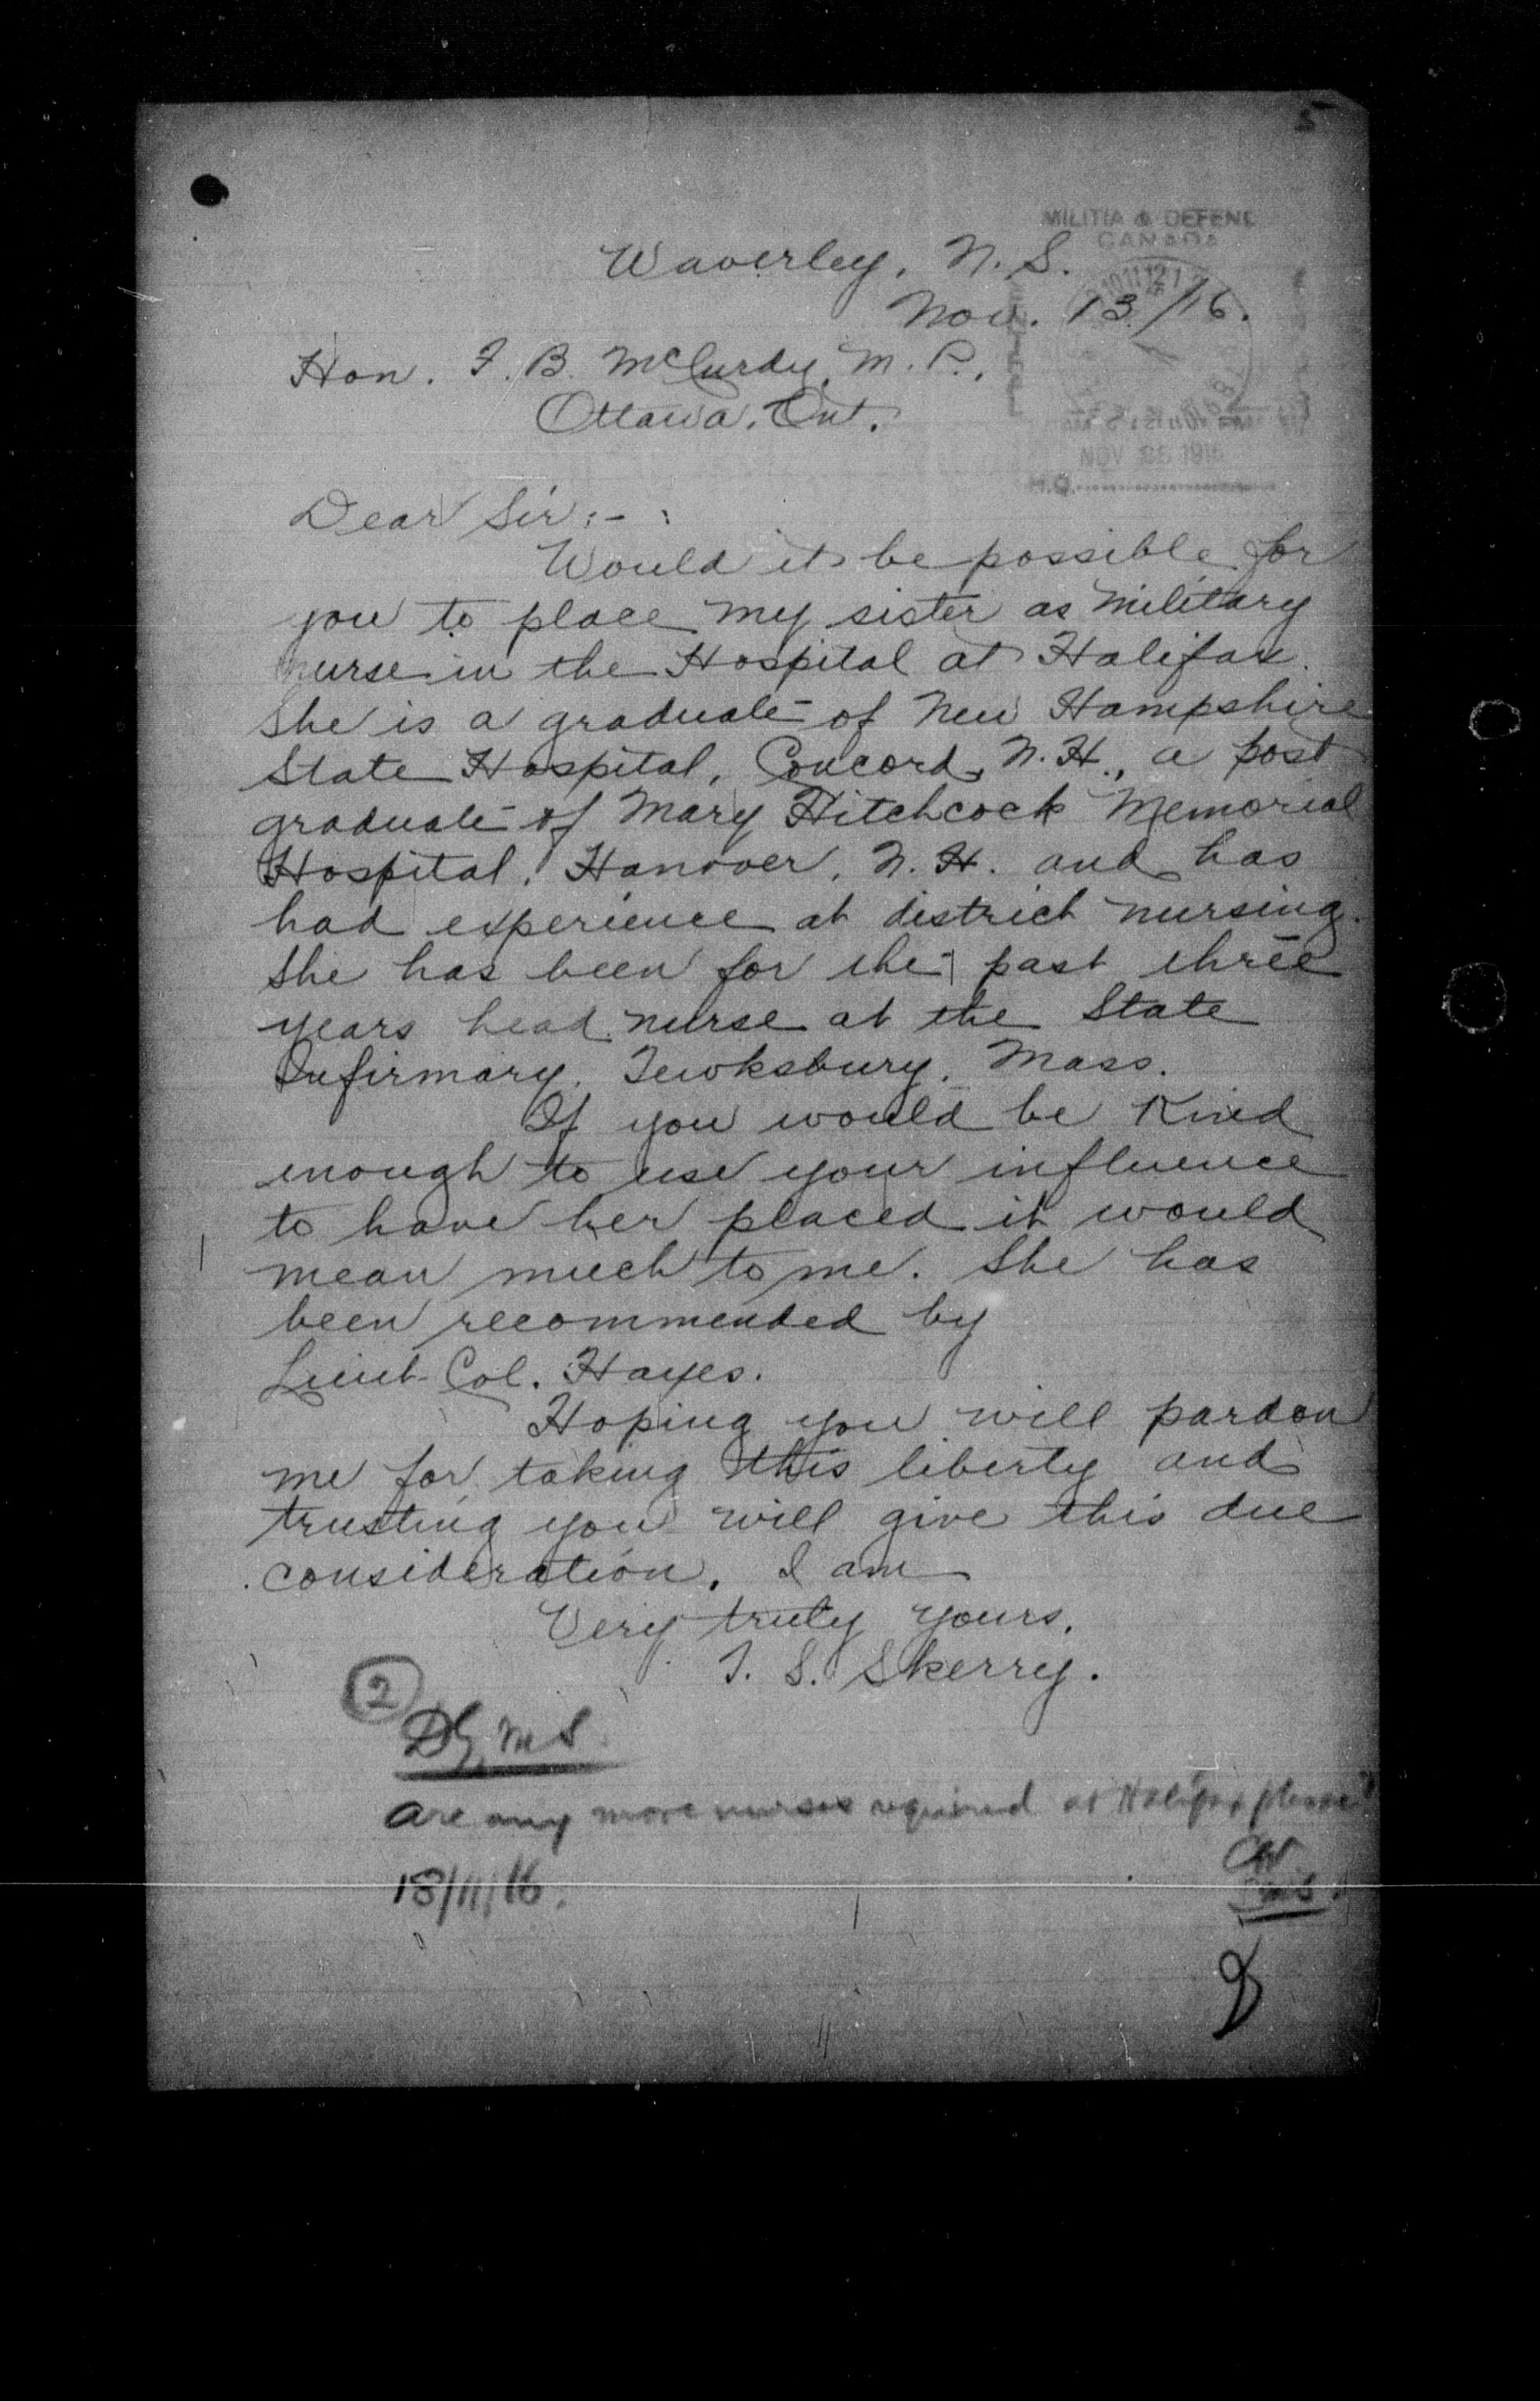 5
MILITIA & DEFENC
CANADA
Waverley, N. S.
Nov. 13/16.
Hon. F. B. McCurdy, M. P.,
Ottawa, Ont.
NOV 1916
H.Q.
Dear Sir:-
Would it be possible for
you to place my sister as military
nurse in the Hospital at Halifax.
She is a graduate of New Hampshire
State Hospital, Concord, N.H., a post
graduate of Mary Hitchcock Memorial
Hospital, Hanover, N. H. and has
had experience at district nursing.
She has been for the past three
years head nurse at the State
Infirmary, Tewksbury, Mass.
If you would be kind
enough to use your influence
to have her placed it would
mean much to me. She has
been recommended by
Lieut-Col. Hayes.
Hoping you will pardon
me for taking this liberty and
trusting you will give this due
consideration, I am
Very truly yours,
T. S. Skerry.
2
D G M S.
Are any more nurses required at Halifax please?
18/11/16.